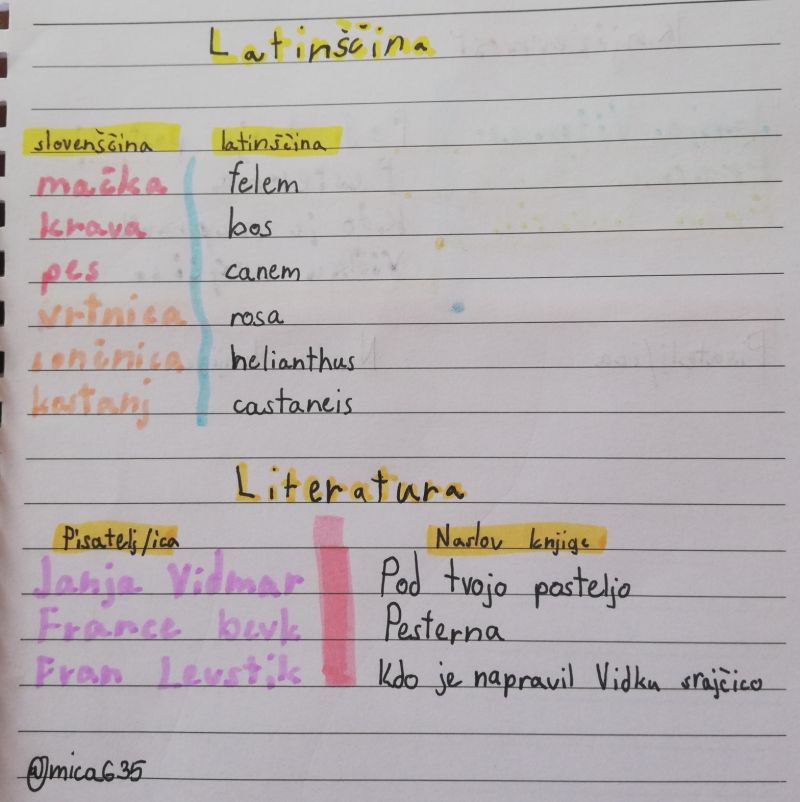 Latinščina
slovenščina latinščina
mačka felem
krava bos
pes canem
vrtnica rosa
sončnica helianthus
kostanj castaneis
Literatura
Pisatelj/ica Naslov knjige
Janja Vidmar Pod tvojo posteljo
France bevk Pesterna
Fran Levstik Kdo je napravil Vidku srajčico
@mica635